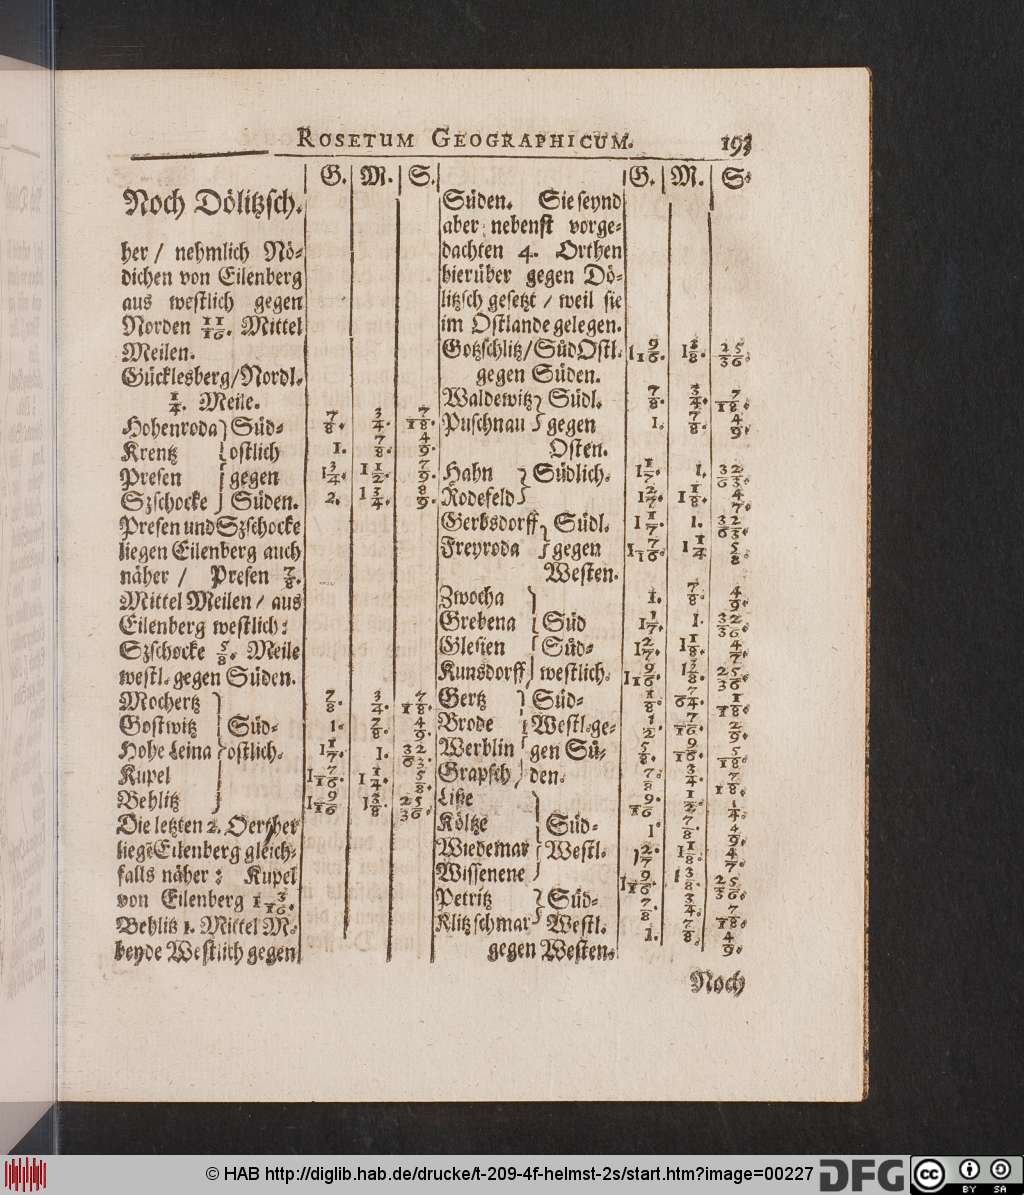 ROSETUM GEOGRAPHICUM. 193
G. M. S.
Noch Dölitzsch.
her / nehmlich Nö-
dichen von Eilenberg
aus westlich gegen
Norden 11/16. Mittel
Meilen.
Gücklesberg/Nordl.
1/4. Meile.
Hohenroda } Süd- 7/8. 3/4. 7/18.
Krentz } ostlich 1. 7/8. 4/9.
Presen } gegen 1 3/4. 1 1/2. 7/9.
Szschocke } Süden. 2. 1 3/4. 8/9.
Presen und Szschocke
liegen Eilenberg auch
näher / Presen 7/8.
Mittel Meilen / aus
Eilenberg westlich:
Szschocke 5/8. Meile
westl. gegen Süden.
Mochertz } 7/8. 3/4. 7/18.
Gostwitz } Süd- 1. 7/8. 4/9.
Hohe Leina } ostlich. 1 1/7. 1.
Kupel } 1 7/16. 1 1/4. 5/8.
Behlitz } 1 9/16 1 3/8
Die letzten 2. Oerther
liegẽ Eilenberg gleich-
falls näher: Kupel
von Eilenberg 1 3/16.
Behlitz 1. Mittel M.
beyde Westlich gegen
G. M. S.
Süden. Sie seynd
aber nebenst vorge-
dachten 4. Orthen
hierüber gegen Dö-
litzsch gesetzt / weil sie
im Ostlande gelegen.
Gotzschlitz/Süd Ostl. 1 9/16. 1 3/8.
gegen Süden.
Waldewitz } Südl. 7/8. 3/4. 7/18.
Puschnau } gegen 1. 7/8. 4/9.
Osten.
Hahn } Südlich. 1 1/7. 1.
Rodefeld } 1 2/7. 1 1/8. 4/7.
Gerbsdorff } Südl. 1 1/7. 1.
Freyroda } gegen 1 7/16. 1 1/4 5/8
Westen.
Zwocha } 1. 7/8. 4/9.
Grebena } Süd 1 1/7. 1.
Glesien } Süd- 1 2/7. 1 1/8. 4/7.
Kunsdorff } westlich. 1 9/16. 1 3/8.
Gertz } Süd- 1/8. 7/64. 1/18.
Brode } Westl. ge- 1/2. 7/16. 2/9.
Werblin } gen Sü- 5/8. 9/16. 5/18.
Grapsch } den. 7/8. 3/4. 7/18.
Liße } 9/16. 1/2. 1/4.
Költze } Süd- 1. 7/8. 4/9.
Wiedemar } Westl. 1 2/7. 1 1/8. 4/7.
Wissenene } 1 9/16. 1 3/8.
Petritz } Süd- 7/8. 3/4. 7/18.
Klitzschmar } Westl. 1. 7/8. 4/9.
gegen Westen.
Noch
© HAB http://diglib.hab.de/drucke/t-209-4f-helmst-2s/start.htm?image=00227
DFG
cc BY SA